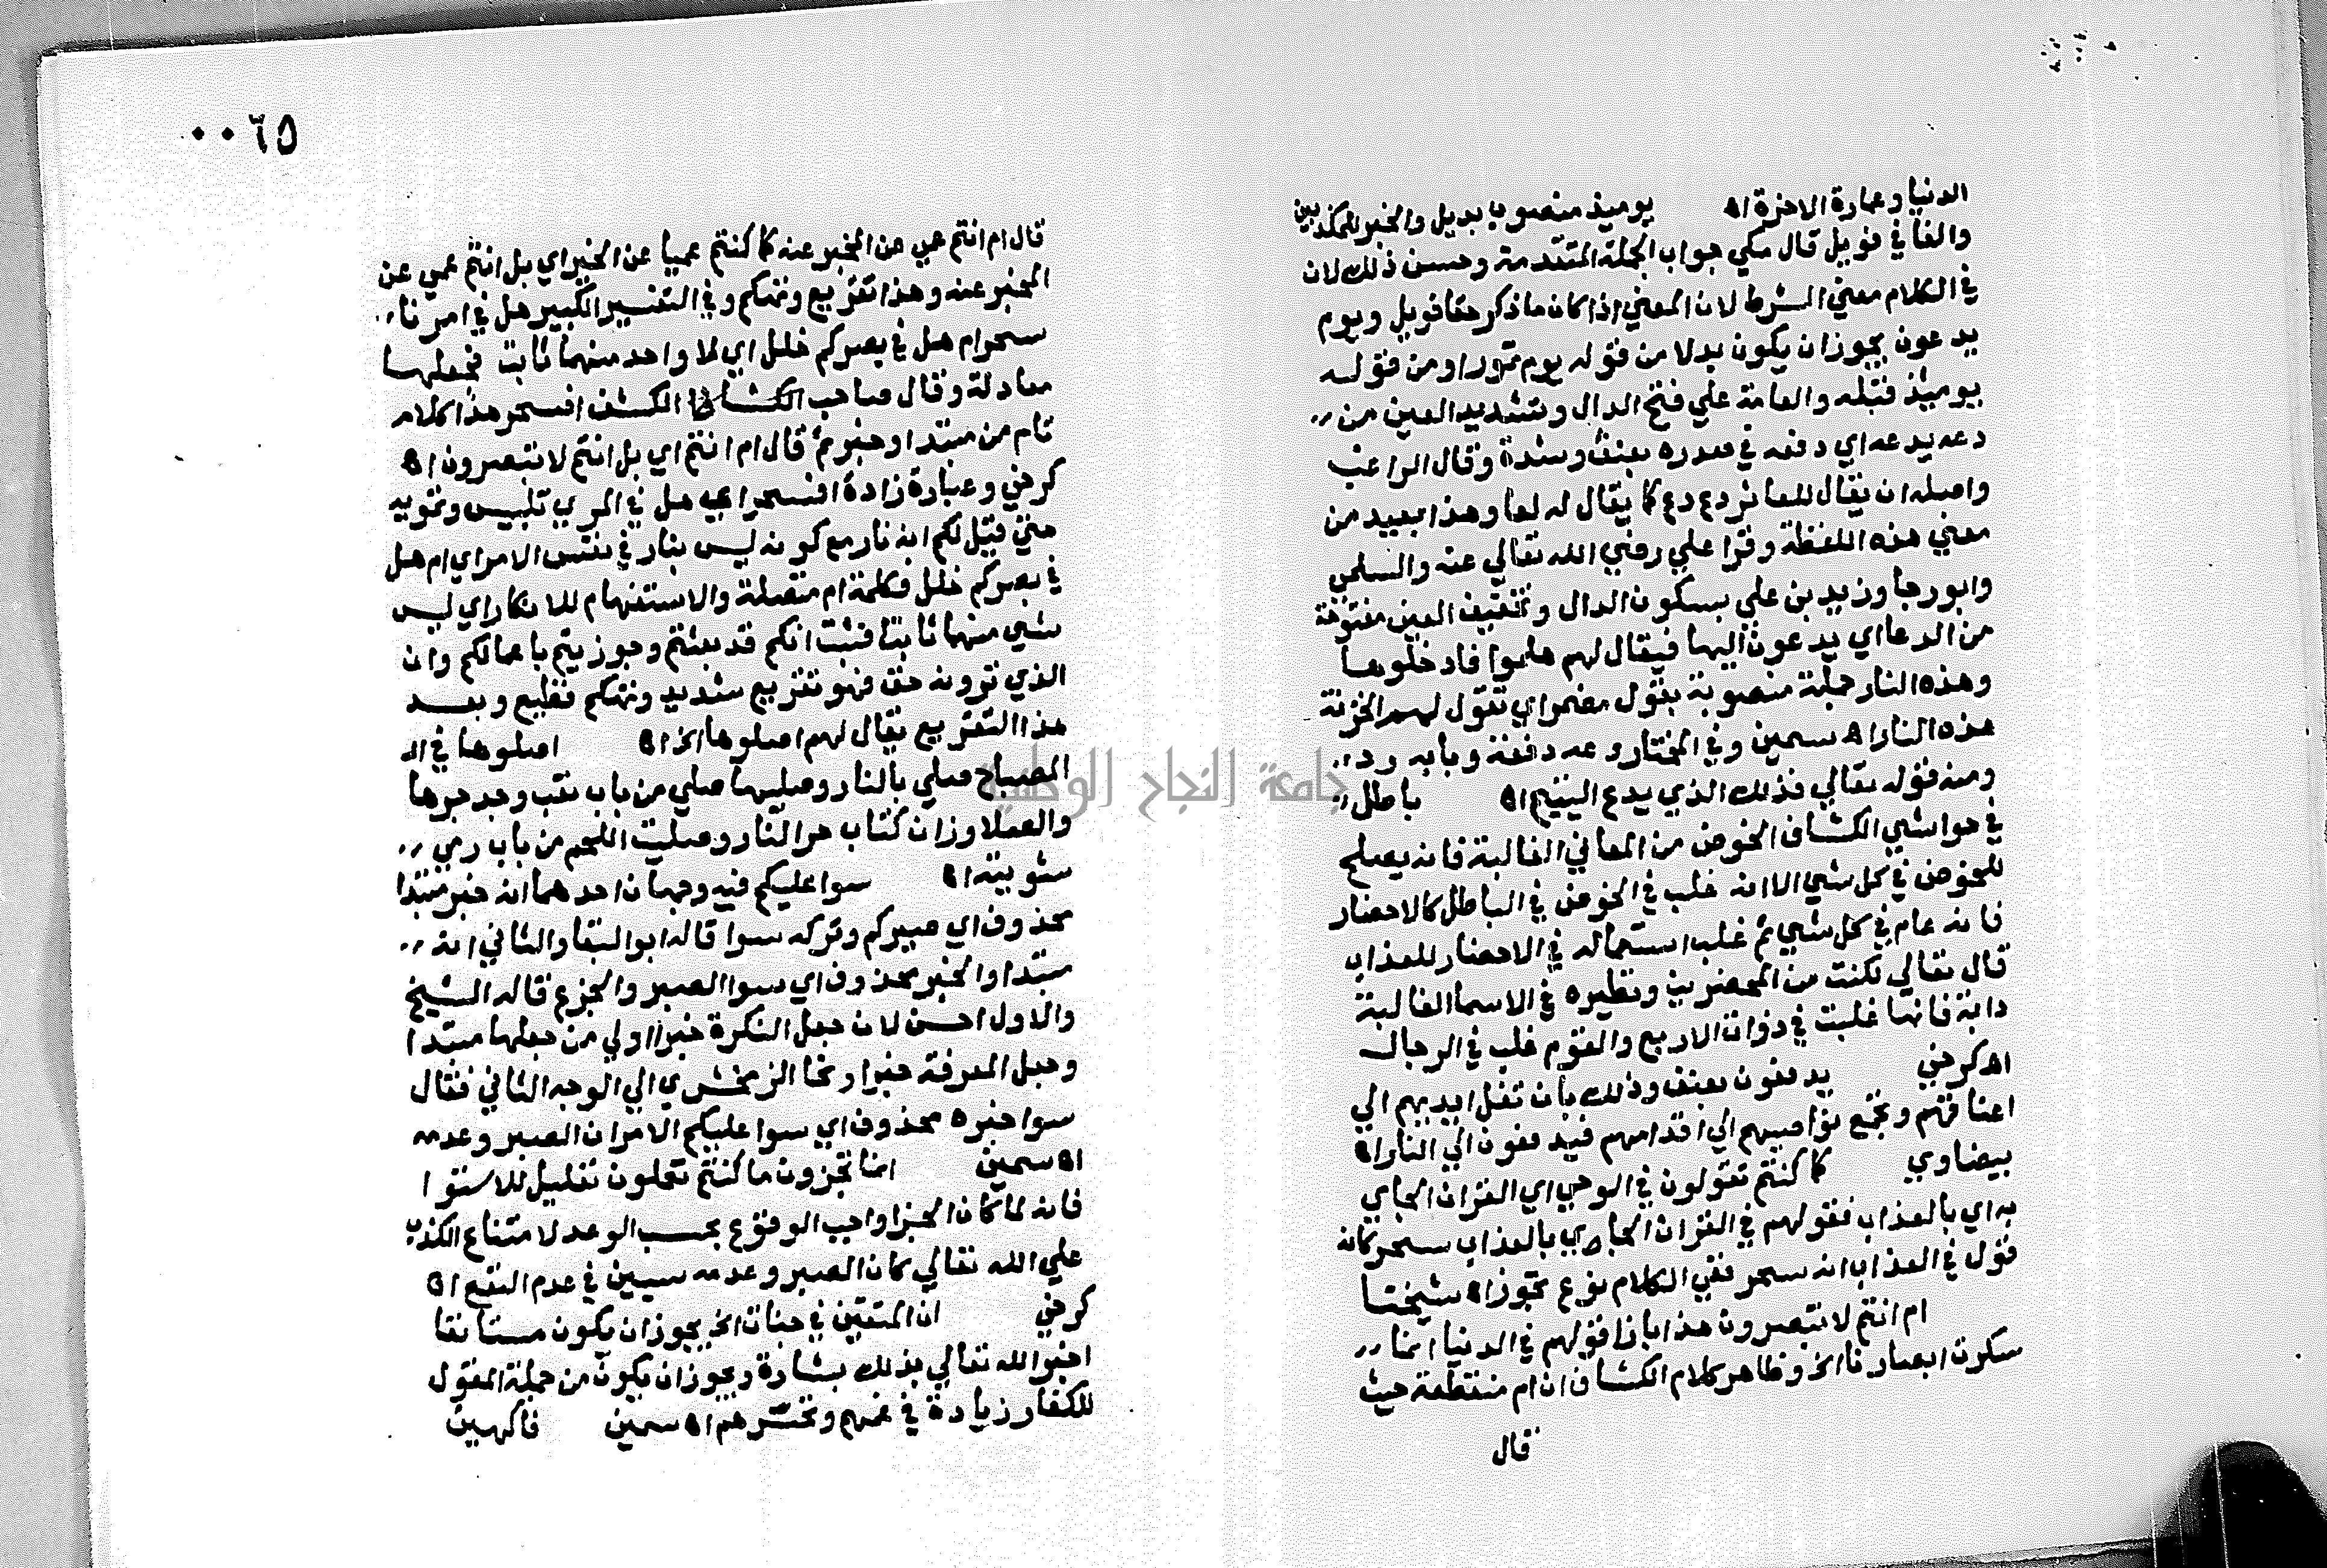 الدنيا وعمارة الاخرة اه يوميذ منصوب بديل والخبر للمكذبين
والفا في فويل قال مكي جواب الجملة المتقدمة وحسن ذلك لان
في الكلام معني الشرط لان المعني اذا كان ما ذكر حقا فويل ويوم
يدعون يجوز ان يكون بدلا من قوله يوم تمور او من قوله
يوميذ قبله والعامة علي فتح الدال وتشديد العين من
دعه يدعه اي دفعه في صدره بعنف وشدة وقال الراغب
واصله ان يقال للعاثر دع دع كما يقال له لعا وهذا بعيد من
معني هذه اللفظة وقرا علي رضي الله تعالي عنه والسلمي
وابو رجا وزيد بن علي بسكون الدال وتخفيف العين مفتوحة
من الدعا اي يدعون اليها فيقال لهم هلموا فادخلوها
وهذه النار جملة منصوبة بقول مضمر اي تقول لهم الخزنة
هذه النار اه سمين وفي المختار دعه دفعه وبابه رد
ومنه قوله تعالي فذلك الذي يدع اليتيم اه باطل
في حواشي الكشاف الخوض من المعاني الغالبة فانه يصلح
للخوض في كل شي الا انه غلب في الخوض في الباطل كالاحضار
فانه عام في كل شي ثم غلب استعماله في الاحضار للعذاب
قال تعالي لكنت من المحضرين ونظيره في الاسما الغالبة
دابة فانها غلبت في ذوات الاربع والقوم غلب في الرجال
اه كرخي يدفعون بعنف وذلك بان تغل ايديهم الي
اعناقهم وتجمع نواصيهم الي اقدامهم فيدفعون الي النار اه
بيضاوي كما كنتم تقولون في الوحي اي القران الجاي
به اي بالعذاب فقولهم في القران الجاي بالعذاب سحر كانه
قول في العذاب انه سحر ففي الكلام نوع تجوز اه شيخنا
ام انتم لا تبصرون هذا بازا قولهم في الدنيا انما
سكرت ابصارنا الخ وظاهر كلام الكشاف ان ام منقطعة حيث
قال
٠٠٦٥
قال ام انتم عمي عن المخبر عنه كما كنتم عميا عن الخبر اي بل انتم عمي عن
المخبر عنه وهذا تقريع وتهكم وفي التفسير الكبير هل في امرنا
سحر ام هل في بصركم خلل اي لا واحد منهما ثابت فجعلها
معادلة وقال صاحب الكشف افسحر هذا كلام
تام من مبتدا وخبر ثم قال ام انتم اي بل انتم لا تبصرون اه
كرخي وعبارة زادة افسحر اي هل في المري تلبيس وتمويه
حتي قيل لكم انه نار مع كونه ليس بنار في نفس الامر اي ام هل
في بصركم خلل فكلمة ام متصلة والاستفهام للانكار اي ليس
شي منهما ثابتا فثبت انكم قد بعثتم وجوزيتم باعمالكم وان
الذي ترونه حق فهو تقريع شديد وتهكم فظيع وبعد
هذا التقريع يقال لهم اصلوها الخ اه اصلوها في ال
المصباح صلي بالنار وصليها صلي من باب تعب وجد حرها
والصلا وزان كتاب حر النار وصليت اللحم من باب رمي
شويته اه سوا عليكم فيه وجهان احدهما انه خبر مبتدا
محذوف اي صبركم وتركه سوا قاله ابو البقا والثاني انه
مبتدا والخبر محذوف اي سوا الصبر والجزع قاله الشيخ
والاول احسن لان جعل النكرة خبرا اولي من جعلها مبتدا
وجعل المعرفة خبرا ونحا الزمخشري الي الوجه الثاني فقال
سوا خبره محذوف اي سوا عليكم الامران الصبر وعدمه
اه سمين انما تجزون ما كنتم تعملون تعليل للاستوا
فانه لما كان الجزا واجب الوقوع بحسب الوعد لامتناع الكذب
علي الله تعالي كان الصبر وعدمه سيين في عدم النفع اه
كرخي ان المتقين في جنات الخ يجوز ان يكون مستانفا
اخبر الله تعالي بذلك بشارة ويجوز ان يكون من جملة المقول
للكفار زيادة في غمهم وتحسرهم اه سمين فاكهين
جامعة النجاح الوطنية